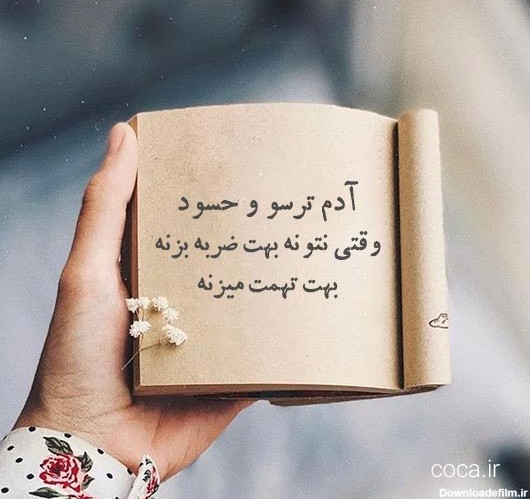 آدم ترسو و حسود
وقتی نتونه بهت ضربه بزنه
بهت تهمت میزنه
coca.ir
Downloadefilm.ir